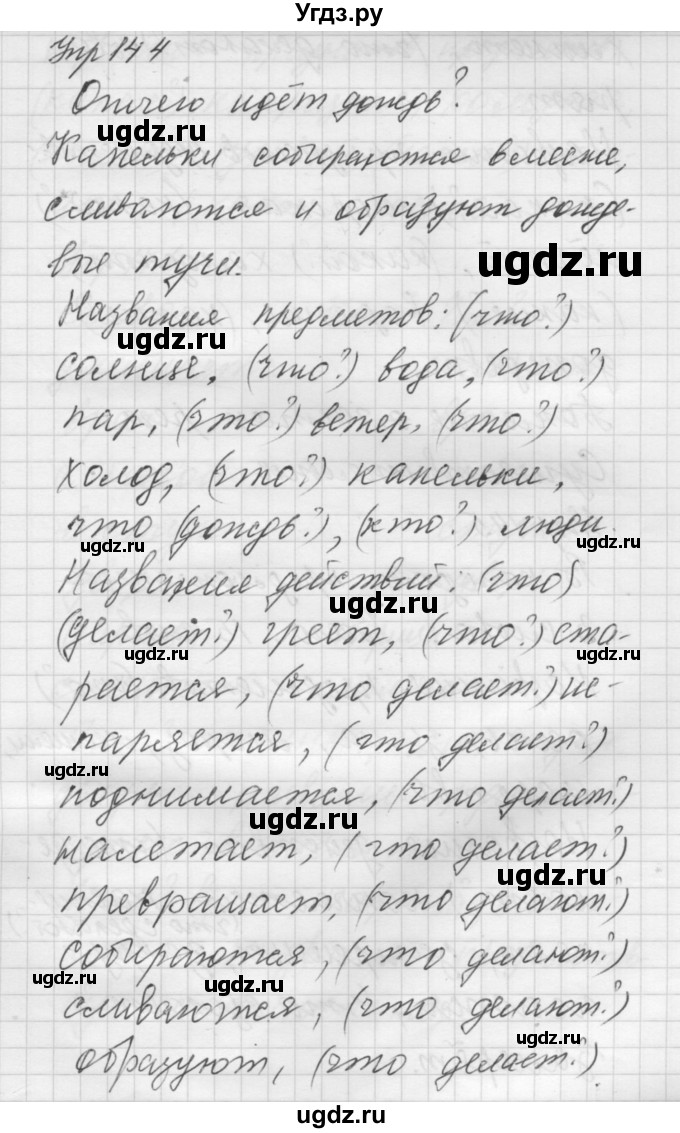 Угдз.ру
Упр 144
Отчего идёт дождь?
ugdz.ru
Капельки собираются вместе,
сливаются и образуют дожде-
ugdz.ru
вые тучи.
ugdz.ru
Названия предметов: (что?)
ugdz.ru
солнце, (что?) вода, (что?)
пар, (что?) ветер, (что?)
ugdz.ru
холод, (что?) капельки,
что (дождь?), (кто?) люди.
ugdz.ru
ugdz.ru
Названия действий: (что)
ugdz.ru
(делает?) греет, (что?) ста-
ugdz.ru
ugdz.ru
рается, (что делает?) ис-
паряется, (что делает?)
ugdz.ru
поднимается, (что делает?)
ugdz.ru
налетает, (что делает?)
ugdz.ru
превращает, (что делают?)
собираются, (что делают?)
ugdz.ru
ugdz.ru
сливаются, (что делают?)
ugdz.ru
образуют, (что делает?)
ugdz.ru